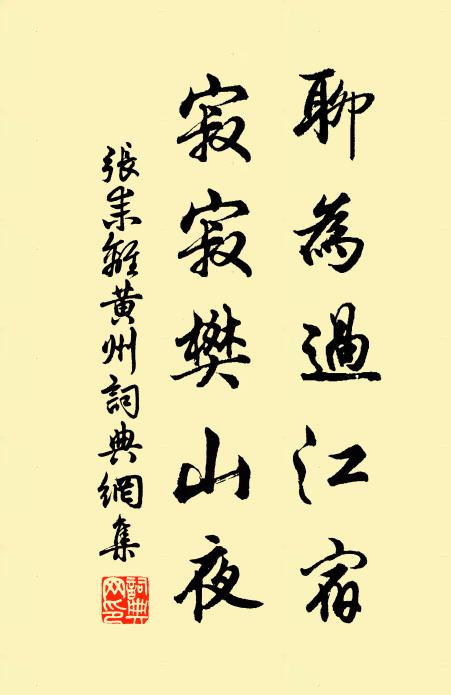 聊為過江宿
寂寂樊山夜
張耒離黄州詞典網集
詞典
网印